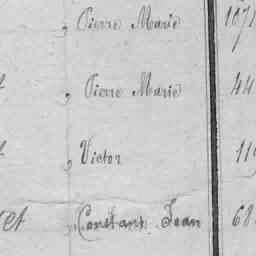 , Pierre Marie 107
, Pierre Marie 44
, Victor 11
et , Constant Jean 68